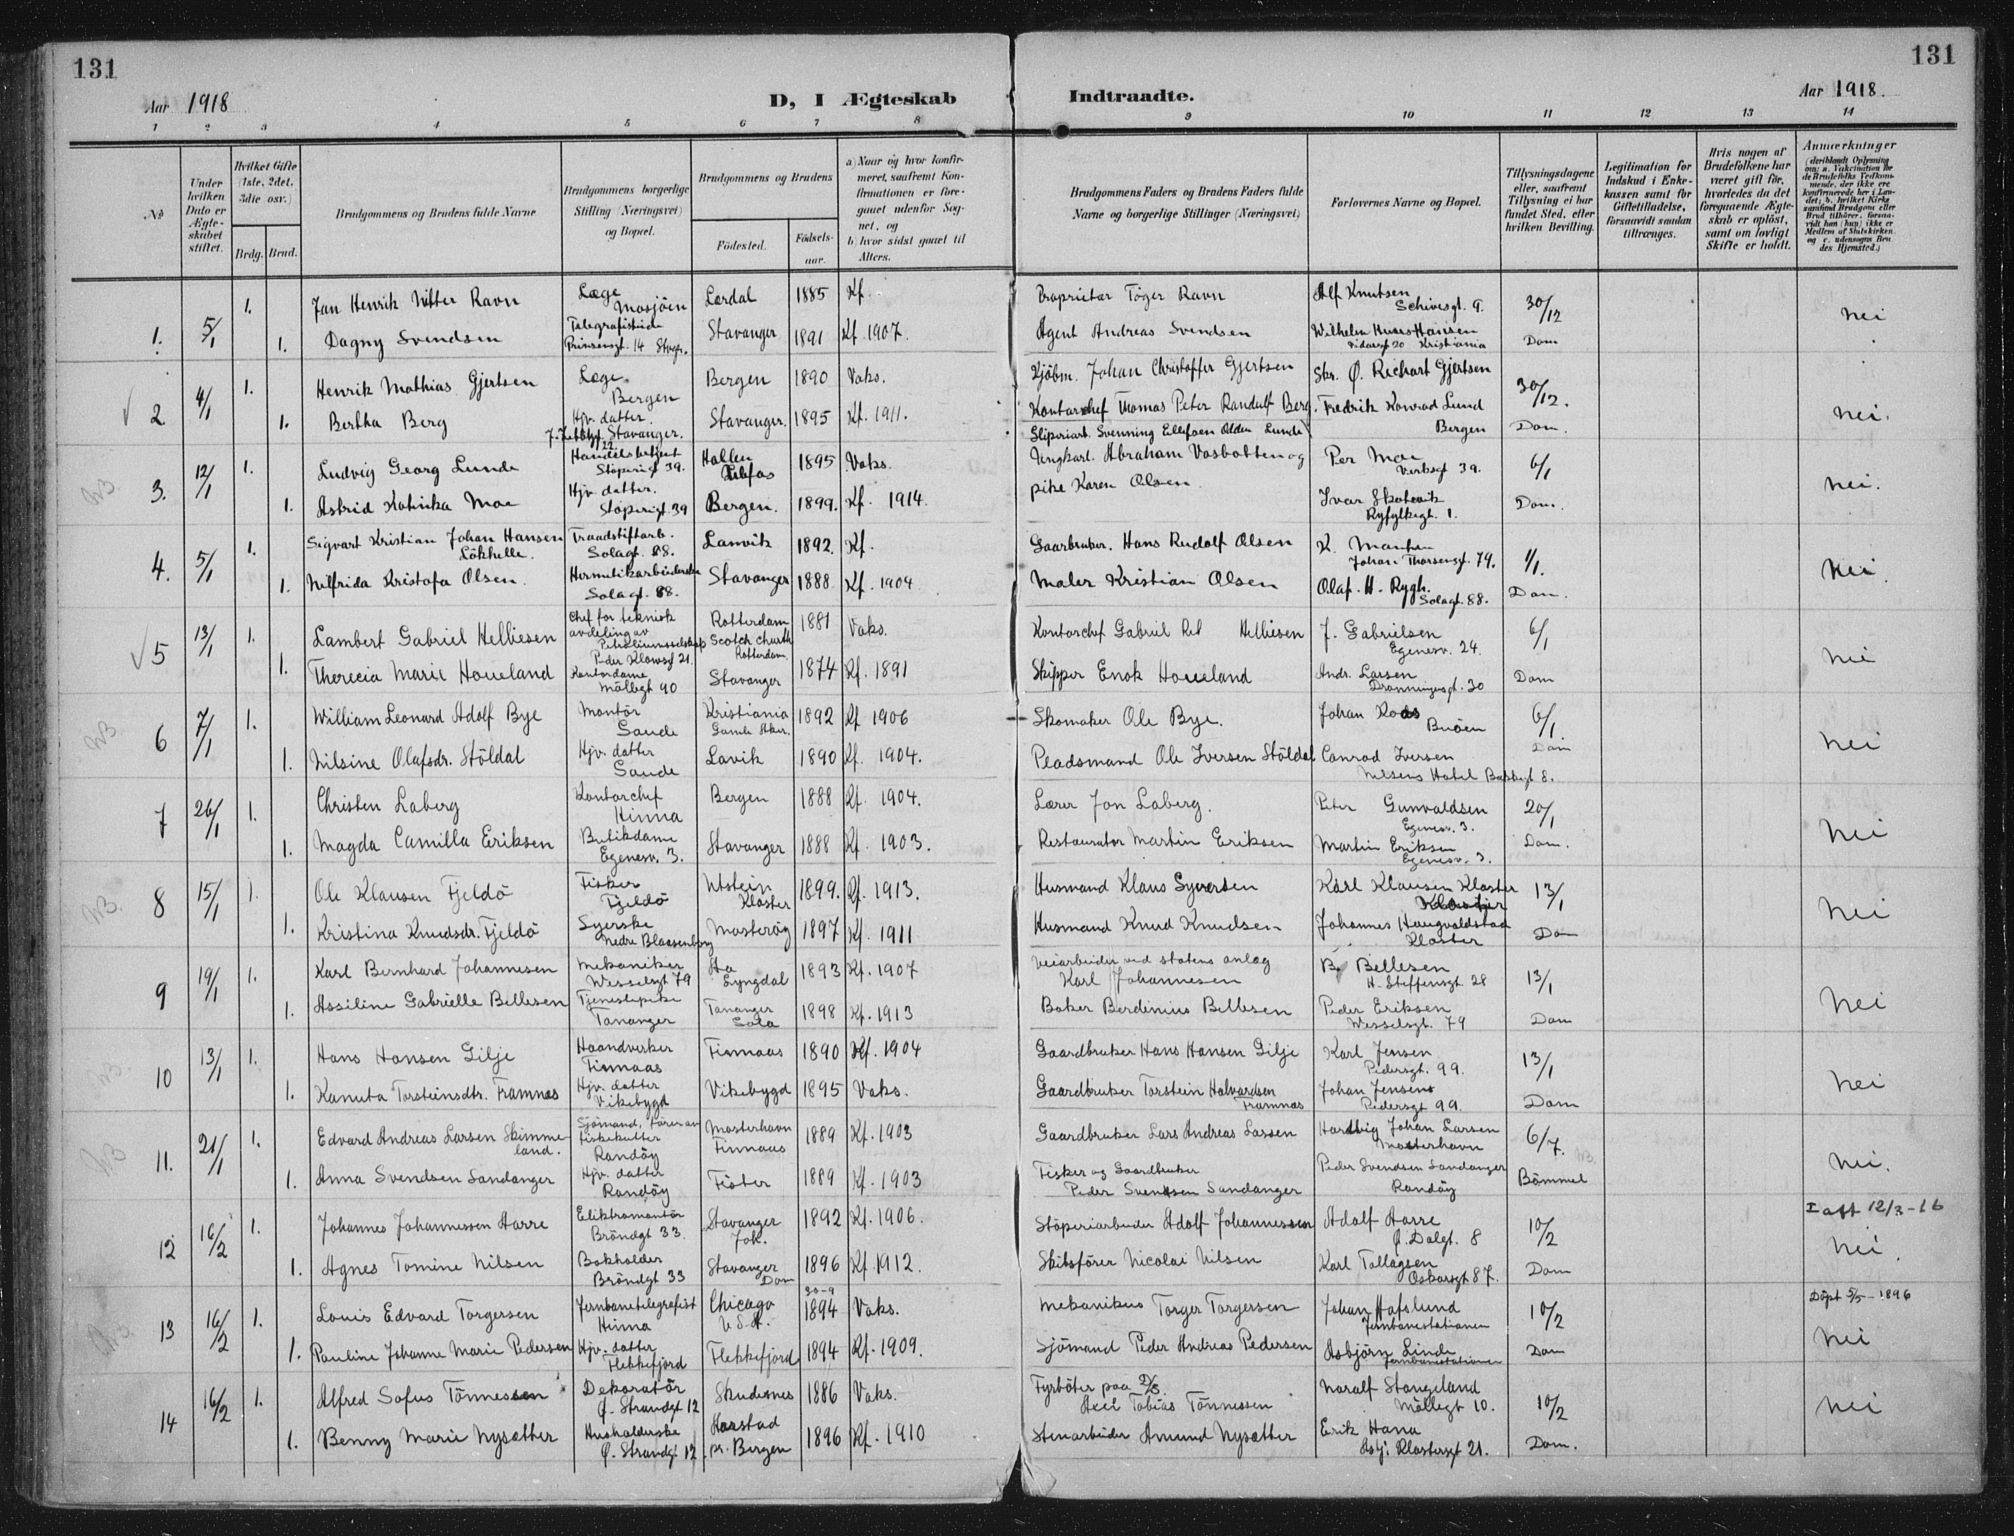 131
131
Aar 1918
D, I Ægteskab
Indtraadte.
Aar 1918.
1 2 3 4 5 6 7 8 9 10 11 12 13 14
No
Under hvilken Dato er Ægteskabet stiftet.
Hvilket Gifte (1ste, 2det, 3die osv.)
Brdg. Brud.
Brudgommens og Brudens fulde Navne
Brudgommens borgerlige Stilling (Næringsvei) og Bopæl.
Brudgommens og Brudens
Födested.
Födselsaar.
a) Naar og hvor konfirmeret, saafremt Konfirmationen er foregaaet udenfor Sognet, og
b) hvor sidst gaaet til Alters.
Brudgommens Faders og Brudens Faders fulde Navne og borgerlige Stillinger (Næringsvei)
Forlovernes Navne og Bopæl.
Tillysningsdagene eller, saafremt Tillysning ei har fundet Sted, efter hvilken Bevilling.
Legitimation for Indskud i Enkekassen samt for Giftetilladelse, forsaavidt saadan tiltrænges.
Hvis nogen af Brudefolkene har været gift før, hvorledes da det foregaaende Ægteskab er oplöst, samt om lovligt Skifte er holdt.
Anmærkninger
1. 5/1 1. Jan Henrik Nitter Ravn Læge Mosjöen Lærdal 1885 Kf. Proprietær Töger Ravn Alf Knutsen Schivesgt. 9. 30/12 nei
1. Dagny Svendsen Telegrafistinde Prinsensgt. 14 Stvgr. Stavanger 1891 Kf. 1907. Agent Andreas Svendsen Wilhelm Hansen Kristiania Dom
2 4/1 1. Henrik Mathias Gjertsen Læge Bergen Bergen 1890 Vaks. Kjöbm. Johan Christoffer Gjertsen Skr. Ø. Richart Gjertsen 30/12. nei.
1. Bertha Berg Hjv. datter. Stavanger. Stavanger. 1895 Kf. 1911. Kontorchef Thomas Peter Randulf Berg. Fredrik Konrad Lund Bergen Dom.
3. 12/1 1. Ludvig Georg Lunde Handelsbetjent Stöperigt 39. 1895 Vaks. Sliperiarb. Svenning Ellefsen Odden Lunde Per Moe Verksgt 39. 6/1 nei.
1. Astrid Katinka Moe Hjv. datter. Stöperigt 39 Bergen. 1899. Kf. 1914. Ungkarl. Abraham Vasbotten og pike Karen Olsen Ivar Skatevik Ryfylkegt. 1. Dom.
4. 5/1 1. Sigvart Kristian Johan Hansen Lökhelle. Traadstiftarb. Solagt. 88. Lanvik 1892. Kf. Gaarbruker. Hans Rudolf Olsen K. Johan Thorsensgt. 79. 1/1. Nei.
1. Wilfrida Kristofa Olsen. Hermetikarbeiderske Solagt. 88. Stavanger 1888. Kf. 1904. Maler Kristian Olsen Olaf. H. Rygh. Solagt. 88. Dom.
5 13/1 1. Lambert Gabriel Helliesen Chef for teknisk avdeling av Petroliumsselskap Peder Klowsgt 21. Rotterdam Scotch church Rotterdam. 1881 Vaks. Kontorchef Gabriel Helliesen J. Gabrielsen Egenesv. 24. 6/1 nei
1. Therecia Marie Houeland Kontordame Möllegt 90 Stavanger 1874 Kf. 1891 Skipper Enok Houeland Andr. Larsen Dronningensgt. 30 Dom
6 7/1 1. William Leonard Adolf Bye Montör Sande Kristiania Gamle Aker. 1892 Kf 1906 Skomaker Ole Bye. Johan Koas Buöen 6/1. nei
1. Nilsine Olafsdr. Stöldal Hjv. datter Sande Lavik 1890 Kf. 1904. Pladsmand Ole Iversen Stöldal Conrad Iversen Nilsens Hotel Bakkegt 8. Dom
7 26/1 1. Christen Laberg Kontorchef Hinna Bergen 1888 Kf. 1904. Lærer Jon Laberg. Peter Gunvaldsen Egenesv. 3. 20/1 nei
1. Magda Camilla Eriksen Butikdame Egenesv. 3. Stavanger 1888 Kf. 1903. Restauratör Martin Eriksen Martin Eriksen Egenesv. 3. Dom.
8 15/1 1. Ole Klausen Fjeldö Fisker Fjeldö Utstein Kloster 1899. Kf. 1913. Husmand Klaus Syvertsen Karl Klausen Kloster 13/1 nei
1. Kristina Knudsdr. Fjeldö Syerske Nedre Blaasenborg Mosteröy 1897 Kf. 1911 Husmand Knud Knudsen Johannes Haugvaldstad Kloster Dom
9 19/1 1. Karl Bernhard Johannesen Mekaniker Wesselsgt 79 Lyngdal 1893 Kf. 1907 Veiarbeider ved statens anlæg Karl Johannesen B. Bellesen H. Steffensgt. 28 13/1 nei
1. Assiline Gabrielle Bellesen Tjenestepike Tananger Tananger Sola 1898 Kf. 1913 Baker Berdinius Bellesen Peder Eriksen Wesselsgt. 79 Dom
10 13/1 1. Hans Hansen Gilje Haandverker Finnaas Finnaas 1890 Kf. 1904 Gaardbruker Hans Hansen Gilje Karl Jensen Pedersgt. 99. 13/1 nei
1. Kanuta Torsteinsdtr. Framnes Hjv. datter Vikebygd Vikebygd 1895 Vaks. Gaardbruker Torstein Halvardsen Framnæs Johan Jensen Pedersgt 99. Dom
11. 21/1 1. Edvard Andreas Larsen Skimmeland. Sjömand, förer av fiskekutter Randöy Mosterhavn Finnaas 1889 Kf. 1903 Gaardbruker Lars Andreas Larsen Hardvig Johan Larsen Mosterhavn 6/7. nei.
1. Anna Svendsen Sandanger Hjv. datter Randöy Fister 1889 Kf. 1903 Fisker og Gaardbruker Peder Svendsen Sandanger Peder Svendsen Sandanger Randöy Bömmel
12 16/2 1. Johannes Johannessen Harre Elektromontör Bröndgt 33. Stavanger Joh. 1892 Kf. 1906. Stöperiarbeider Adolf Johannessen Adolf Harre Ø. Dalgt. 8 10/2 I att 12/3-16 nei.
1. Agnes Tomine Nilsen Bokholder Bröndgt 33 Stavanger Dom 1896 Kf. 1912. Skibsförer Nicolai Nilsen Karl Tollagsen Oskarsgt 87. Dom
13 16/2 1. Louis Edvard Torgersen Jernbanetelegrafist Hinna Chicago U.S.A. 30-9 1894 Vaks. Mekanikus Torger Torgersen Johan Hafslund Jernbanestationen 10/2 Döpt 5/5-1896 nei
1. Pauline Johanne Marie Pedersen Hjv. datter Flekkefjord Flekkefjord 1894 Kf. 1909. Sjömand Peder Andreas Pedersen Asbjörn Linde Jernbanestationen Dom
14 16/2 1. Alfred Sofus Tönnessen Dekoratör Ø. Strandgt 12 Skudesnes 1886 Vaks. Fyrböter paa D/S. Axel Tobias Tönnessen Naralf Stangeland Möllegt 10. 10/2 nei
1. Benny Marie Nysætter Husholderske Ø. Strandgt. 12. Haastad pr. Bergen 1896 Kf. 1910 Stenarbeider Amund Nysætter Erik Hana Klostergt 21. Dom.